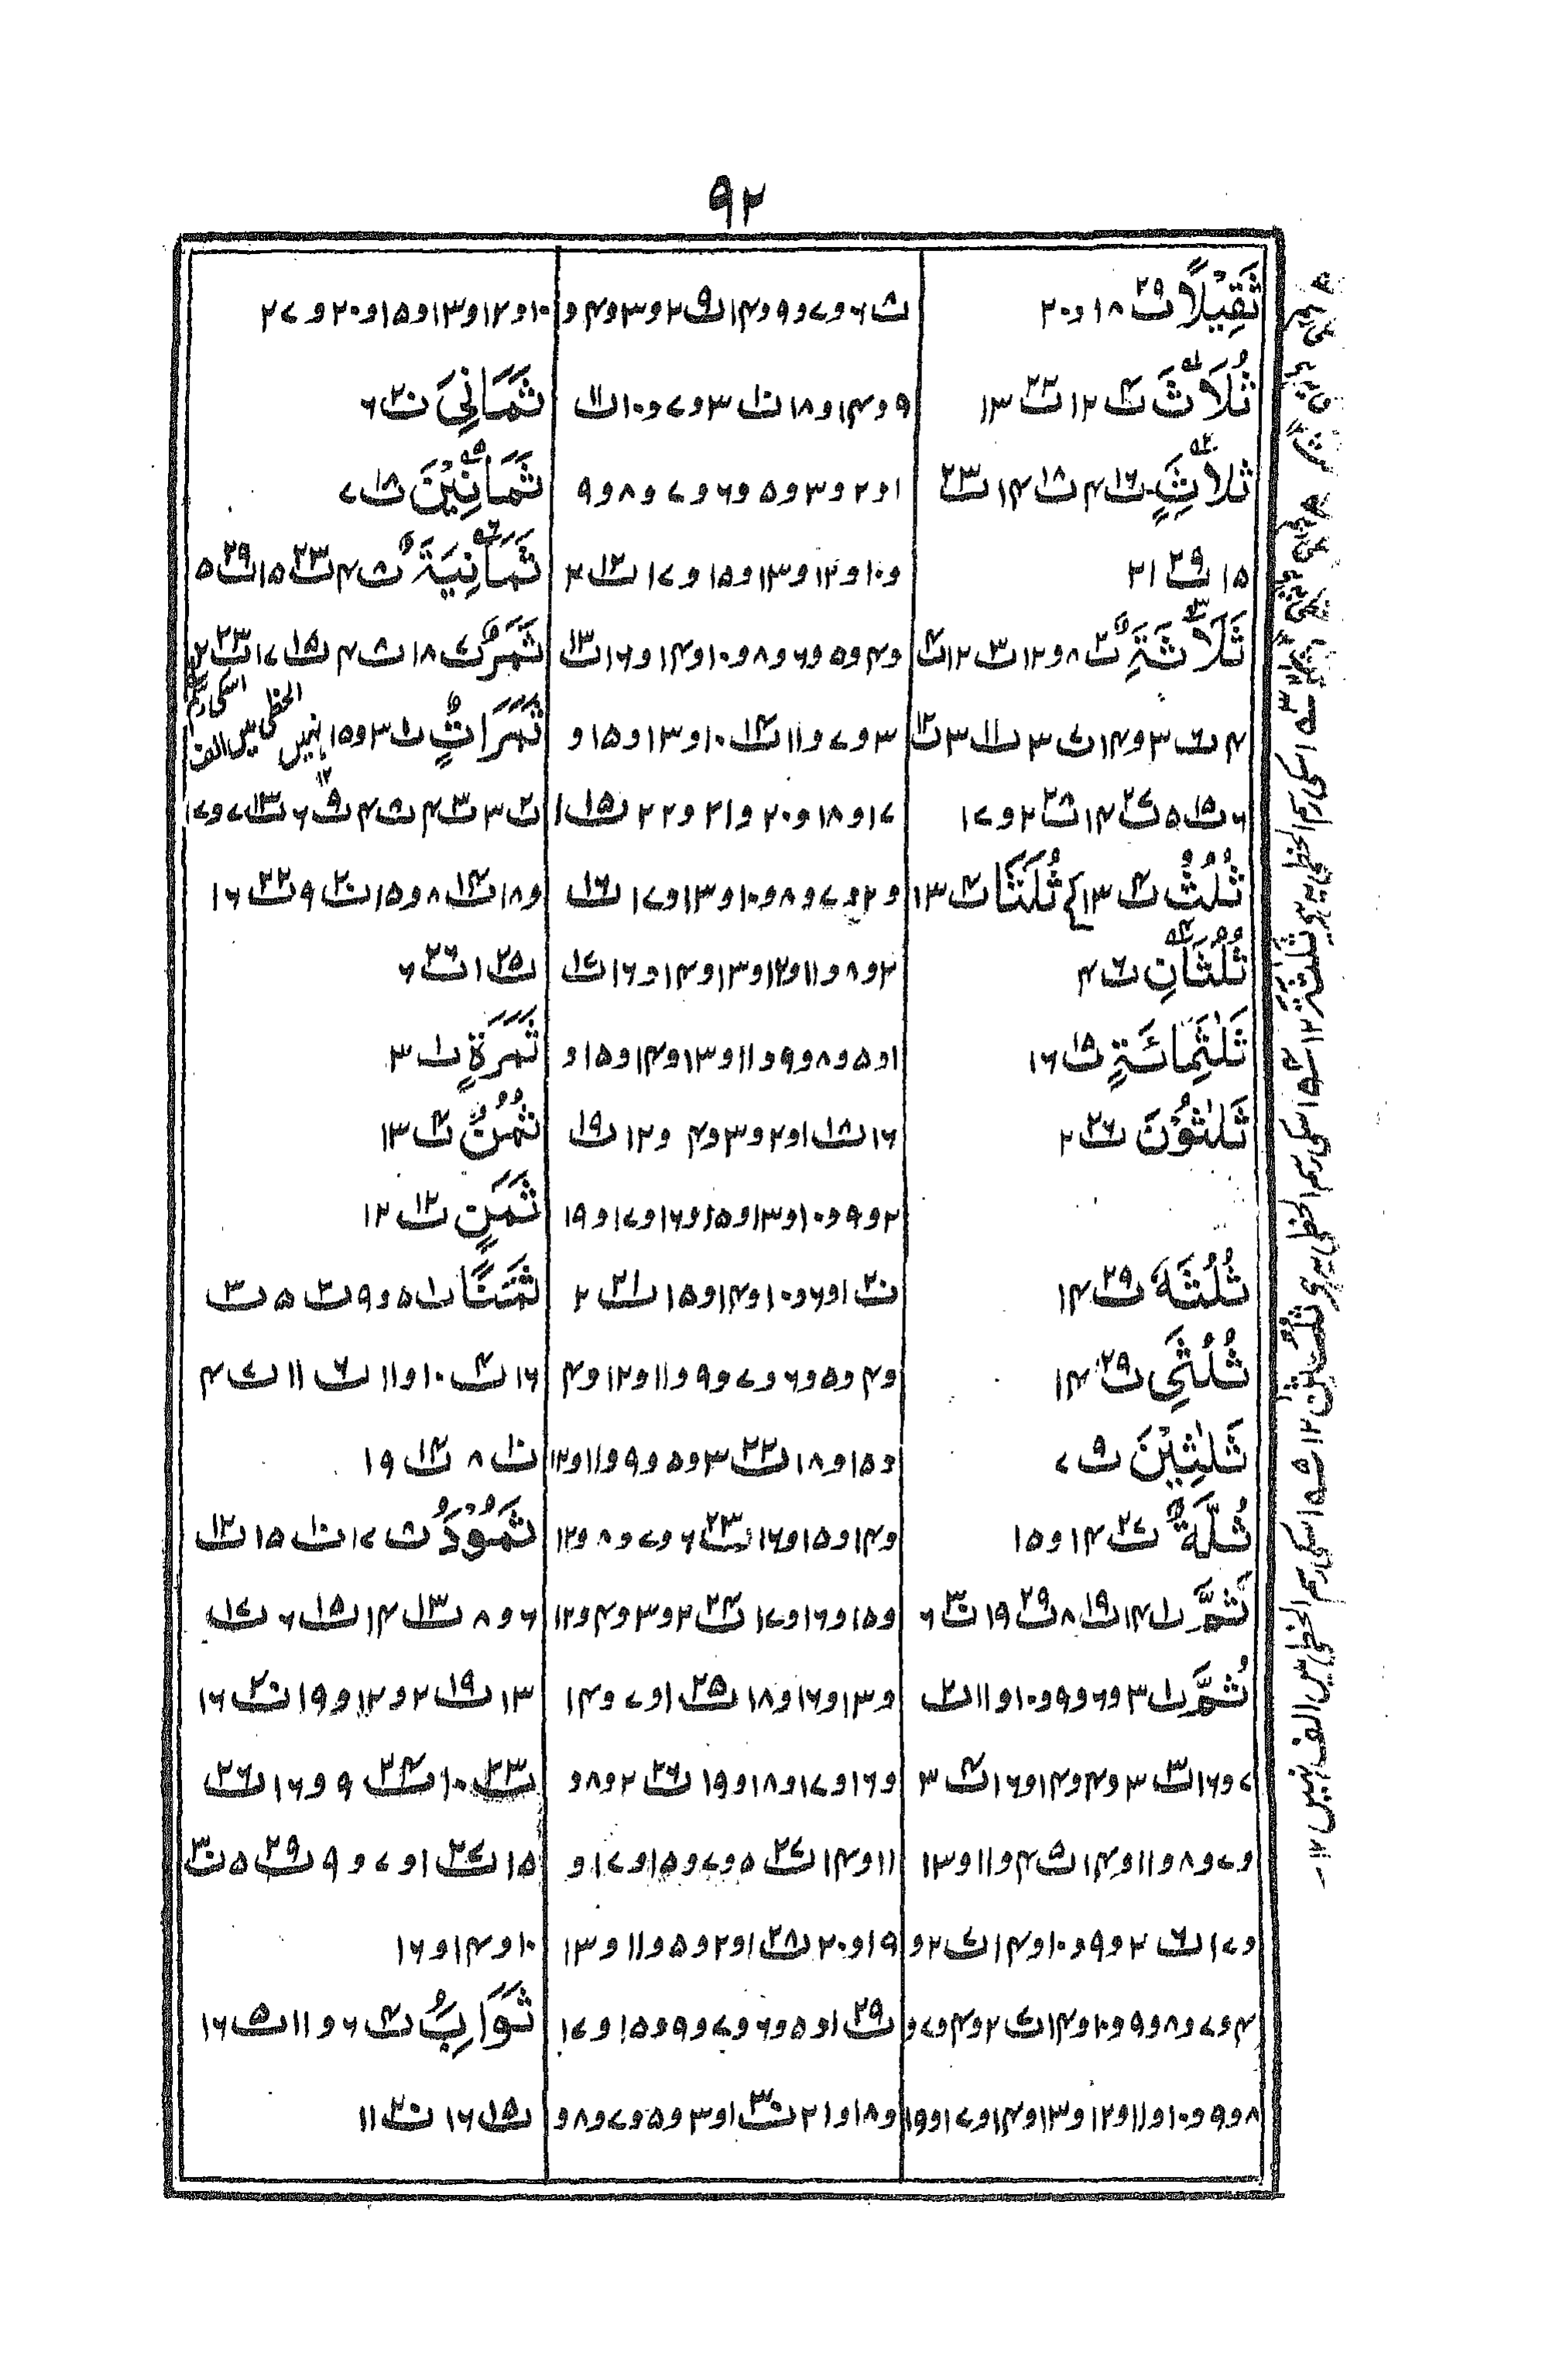 ۹۲
ثَقِیْلًا ت۲۹ ۱۸ و ۲۰
ثُلَاثَ ت۴ ۱۲ ت۲۲ ۱۳
ثَلَاثٍ ت۱۶ ۴ ت۱۸ ۱۴ ت۲۳
۱۵ ت۲۹ ۲۱
ثَلَاثَةِ ت۲ ۸ و ۱۲ ت۳ ۱۲ ت۴
۴ ت۶ ۳ و ۱۴ ت۷ ۳ ت۱۱ ۳ ت۱۲
۶ ت۱۵ ۵ ت۲۷ ۱۴ ت۲۸ ۲ و ۱۷
ثُلُثُ ت۴ ۱۳ ثُلَثَا ت۴ ۱۳
ثُلُثَانِ ت۶ ۴
ثَلٰثِمِائَةٍ ت۱۵ ۱۶
ثَلٰثُوْنَ ت۲۶ ۲
ثُلُثَهٗ ت۲۹ ۱۴
ثُلُثَیِ ت۲۹ ۱۴
ثَلٰثِیْنَ ت۹ ۷
ثُلَّةٌ ت۲۷ ۱۴ و ۱۵
ثَمَّ ت۱ ۱۴ ت۱۹ ۸ ت۲۹ ۱۹ ت۳۰ ۶
ثُمَّ ت۱ ۳ و ۶ و ۹ و ۱۰ و ۱۱ ت۲
۷ و ۱۶ ت۳ ۳ و ۴ و ۱۴ و ۱۶ ت۴ ۳
و ۷ و ۸ و ۱۱ و ۱۴ ت۵ ۴ و ۱۱ و ۱۳
و ۱۷ ت۶ ۲ و ۹ و ۱۰ و ۱۴ ت۷ ۲ و
۴ و ۷ و ۸ و ۹ و ۱۰ و ۱۴ ت۷ ۲ و ۴ و ۷ و
۸ و ۹ و ۱۰ و ۱۱ و ۱۲ و ۱۳ و ۱۴ و ۱۷ و ۱۹
ت۸ ۶ و ۷ و ۹ و ۱۴ ت۹ ۲ و ۳ و ۴ و
۹ و ۱۴ و ۱۸ ت۱۰ ۳ و ۷ و ۱۰ ت۱۱
۱ و ۲ و ۳ و ۵ و ۶ و ۷ و ۸ و ۹
و ۱۰ و ۱۲ و ۱۳ و ۱۵ و ۱۷ ت۱۲ ۲
و ۴ و ۵ و ۶ و ۸ و ۱۰ و ۱۴ و ۱۶ ت۱۳
۳ و ۷ و ۱۱ ت۱۴ ۱۰ و ۱۳ و ۱۵ و
۱۷ و ۱۸ و ۲۰ و ۲۱ و ۲۲ ت۱۵ ۱
و ۲ و ۷ و ۸ و ۱۰ و ۱۳ و ۱۷ ت۱۶
۲ و ۸ و ۱۱ و ۱۲ و ۱۳ و ۱۴ و ۱۶ ت۱۷
۱ و ۵ و ۸ و ۹ و ۱۱ و ۱۳ و ۱۴ و ۱۵ و
۱۶ ت۱۸ ۱ و ۲ و ۳ و ۴ و ۱۲ ت۱۹
۲ و ۹ و ۱۰ و ۱۳ و ۱۵ و ۱۶ و ۱۷ و ۱۹
ت۲۰ ۱ و ۶ و ۱۰ و ۱۴ و ۱۵ ت۲۱ ۲
و ۴ و ۵ و ۶ و ۷ و ۹ و ۱۱ و ۱۲ و ۱۴
و ۱۵ و ۱۸ ت۲۲ ۳ و ۵ و ۹ و ۱۱ و ۱۳
و ۱۴ و ۱۵ و ۱۶ ت۲۳ ۶ و ۷ و ۸ و ۱۲
و ۱۵ و ۱۶ و ۱۷ ت۲۴ ۲ و ۳ و ۴ و ۱۲
و ۱۳ و ۱۶ و ۱۸ ت۲۵ ۱ و ۷ و ۱۴
و ۱۶ و ۱۷ و ۱۸ و ۱۹ ت۲۶ ۲ و ۸ و
۱۱ و ۱۴ ت۲۷ ۵ و ۷ و ۱۵ و ۱۷ و
۱۹ و ۲۰ ت۲۸ ۱ و ۲ و ۵ و ۱۱ و ۱۳
ت۲۹ ۱ و ۵ و ۶ و ۷ و ۹ و ۱۵ و ۱۷
و ۱۸ و ۲۱ ت۳۰ ۱ و ۳ و ۵ و ۷ و ۸ و
۱۰ و ۱۲ و ۱۳ و ۱۵ و ۲۰ و ۲۷
ثَمَانِیَ ت۲۰ ۶
ثَمَانِیْنَ ت۱۸ ۷
ثَمَانِیَةَ ت۸ ۴ ت۲۳ ۱۵ ت۲۹ ۵
ثَمَرِ ت۷ ۱۸ ت۸ ۴ ت۱۵ ۱۷ ت۲۳ ۲
ثَمَرَاتٍ ت۱ ۳ و ۱۵ اسکی رسم الخط میں الف نہیں ۱۲
ت۲ ۳ ت۳ ۴ ت۸ ۴ ت۹ ۶ ت۱۳ ۷ و ۱۷
و ۱۸ ت۱۴ ۸ و ۱۵ ت۲۰ ۹ ت۲۲ ۱۶
ت۲۵ ۱ ت۲۶ ۶
ثَمَرَةٍ ت۱ ۳
ثُمُنُ ت۴ ۱۳
ثَمَنٍ ت۱۲ ۱۲
ثَمَنًا ت۱ ۵ و ۹ ت۲ ۵ ت۳
۱۶ ت۴ ۱۰ و ۱۱ ت۶ ۱۱ ت۷ ۴
ت۱۰ ۸ ت۱۴ ۱۹
ثَمُوْدُ ت۸ ۱۷ ت۱۰ ۱۵ ت۱۲
۶ و ۸ ت۱۳ ۱۴ ت۱۵ ۶ ت۱۷
۱۳ ت۱۹ ۲ و ۱۲ و ۱۹ ت۲۰ ۱۶
ت۲۳ ۱۰ ت۲۴ ۹ و ۱۶ ت۲۶
۱۵ ت۲۷ ۱ و ۷ و ۹ ت۲۹ ۵ ت۳۰
۱۰ و ۱۴ و ۱۶
ثَوَابُ ت۴ ۶ و ۱۱ ت۵ ۱۶
ت۱۵ ۱۶ ت۲۰ ۱۱
اسکی رسم الخط یہ ہی ثَلٰثَةَ ۱۲ اسکی رسم الخط یہ ہی ثُلُثٰنِ ۱۲ اسکی رسم الخط میں الف نہیں ۱۲